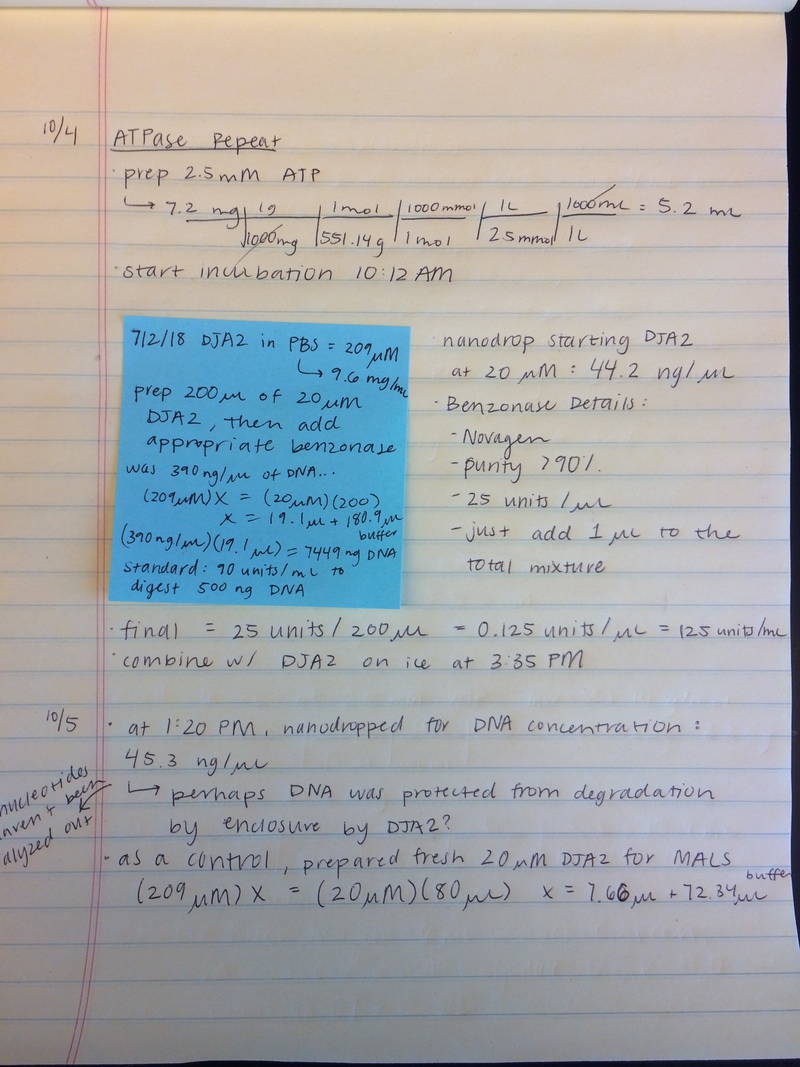 10/4 ATPase Repeat
· prep 2.5 mM ATP
↳ 7.2 mg | 1g / 1000mg | 1 mol / 551.14 g | 1000 mmol / 1 mol | 1L / 2.5 mmol | 1000 mL / 1L = 5.2 mL
· start incubation 10:12 AM
7/2/18 DJA2 in PBS = 209 μM
↳ 9.6 mg/mL
prep 200 μL of 20 μM
DJA2, then add
appropriate benzonase
was 390 ng/μL of DNA...
(209 μM) X = (20 μM)(200)
X = 19.1 μL + 180.9 μL
buffer
(390 ng/μL)(19.1 μL) = 7449 ng DNA
standard: 90 units/mL to
digest 500 ng DNA
nanodrop starting DJA2
at 20 μM : 44.2 ng/μL
· Benzonase Details:
- Novagen
- purity >90%
- 25 units/μL
- just add 1 μL to the
total mixture
· final = 25 units/200 μL = 0.125 units/μL = 125 units/mL
· combine w/ DJA2 on ice at 3:35 PM
10/5 · at 1:20 PM, nanodropped for DNA concentration :
45.3 ng/μL
↳ perhaps DNA was protected from degradation
by enclosure by DJA2?
nucleotides
haven't been
dialyzed out
· as a control, prepared fresh 20 μM DJA2 for MALS
(209 μM) X = (20 μM)(80 μL) X = 7.66 μL + 72.34 μL
buffer